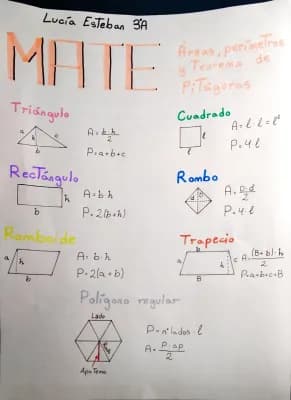 Lucía Esteban 3ºA
MATE
Áreas, perímetros
y Teorema de
Pitágoras
Triángulo
a h c
b
A = b·h / 2
P = a+b+c
Cuadrado
l
l
A = l·l = l²
P = 4·l
Rectángulo
h
b
A = b·h
P = 2(b+h)
Rombo
D
d
A = D·d / 2
P = 4·l
Romboide
a h
b
A = b·h
P = 2(a+b)
Trapecio
b
a h c
B
A = (B+b)·h / 2
P = a+b+c+B
Polígono regular
Lado
Apotema
P = nº lados · l
A = P·ap / 2